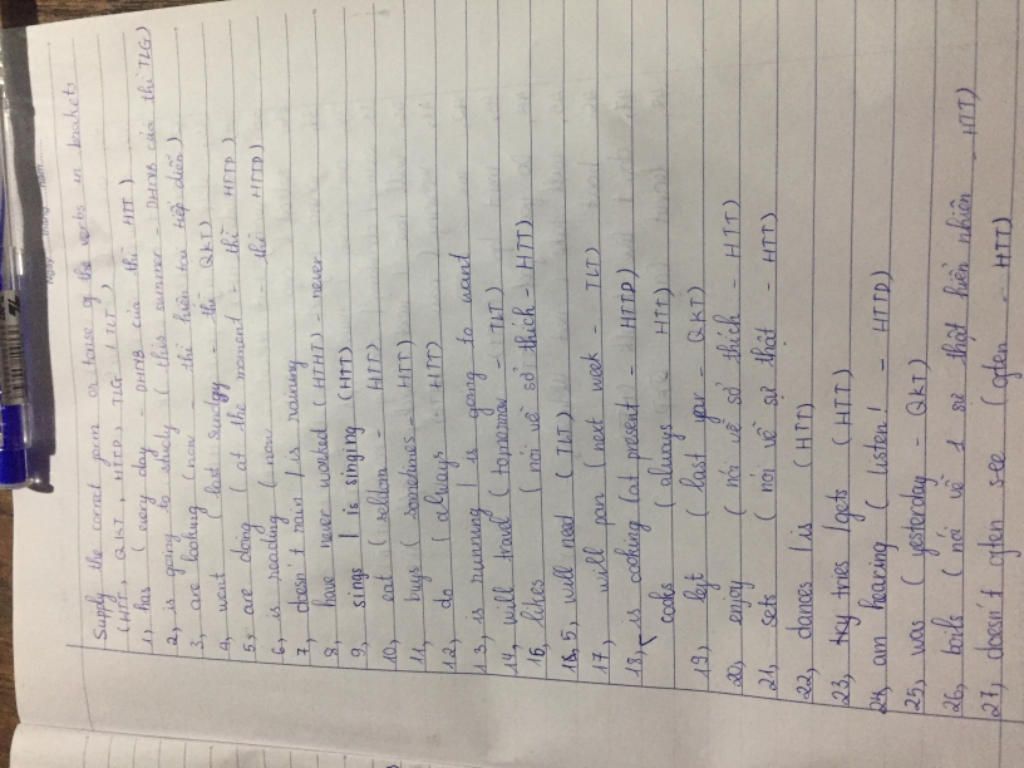 Supply the correct form or tense of the verbs in brackets
(HTT, QKT, HTTD, TLG, TLT)
1, has (every day - DHNB của thì HTT)
2, is going to study (this summer - DHNB của thì TLG)
3, are looking (now - thì hiện tại tiếp diễn)
4, went (last sunday - thì QKT)
5, are doing (at the moment - thì HTTD)
6, is reading (now - thì HTTD)
7, doesn't rain / is raining
8, have never worked (HTHT) - never
9, sings / is singing (HTT)
10, eat (seldom - HTT)
11, buys (sometimes - HTT)
12, do (always - HTT)
13, is running / is going to want
14, will travel (tomorrow - TLT)
15, likes (nói về sở thích - HTT)
16, will need (TLT)
17, will pan (next week - TLT)
18, is cooking (at present - HTTD)
cooks (always HTT)
19, left (last year - QKT)
20, enjoy (nói về sở thích - HTT)
21, sets (nói về sự thật - HTT)
22, dances / is (HTT)
23, tries / gets (HTT)
24, am hearing (listen! - HTTD)
25, was (yesterday - QKT)
26, boils (nói về 1 sự thật hiển nhiên - HTT)
27, doesn't often see (often - HTT)